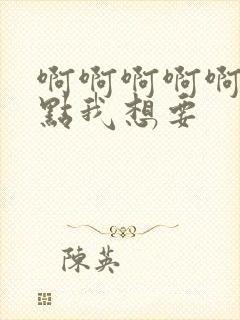 啊啊啊啊啊
點我想要
陳英